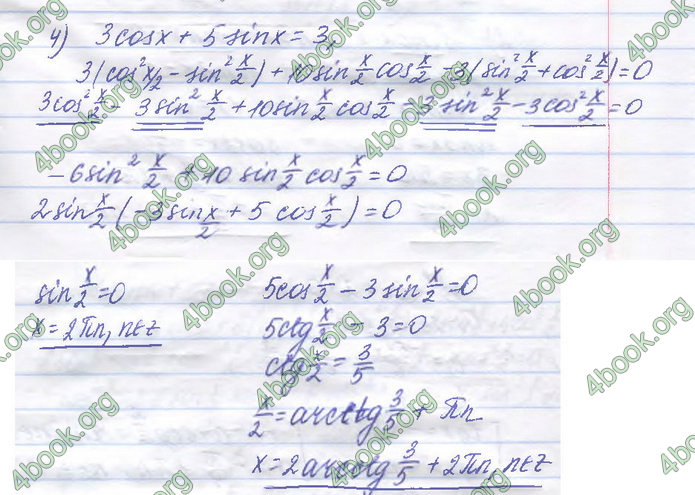 4) 3cosx + 5sinx = 3,
3(cos²x/2 - sin²x/2) + 10sin x/2 cos x/2 - 3(sin²x/2 + cos²x/2) = 0
3cos²x/2 - 3sin²x/2 + 10sin x/2 cos x/2 - 3sin²x/2 - 3cos²x/2 = 0
-6sin²x/2 + 10 sin x/2 cos x/2 = 0
2sin x/2 (-3sin x/2 + 5 cos x/2) = 0
sin x/2 = 0
x = 2πn, n∈Z
5cos x/2 - 3sin x/2 = 0
5ctg x/2 - 3 = 0
ctg x/2 = 3/5
x/2 = arcctg 3/5 + πn
x = 2arcctg 3/5 + 2πn, n∈Z
4book.org